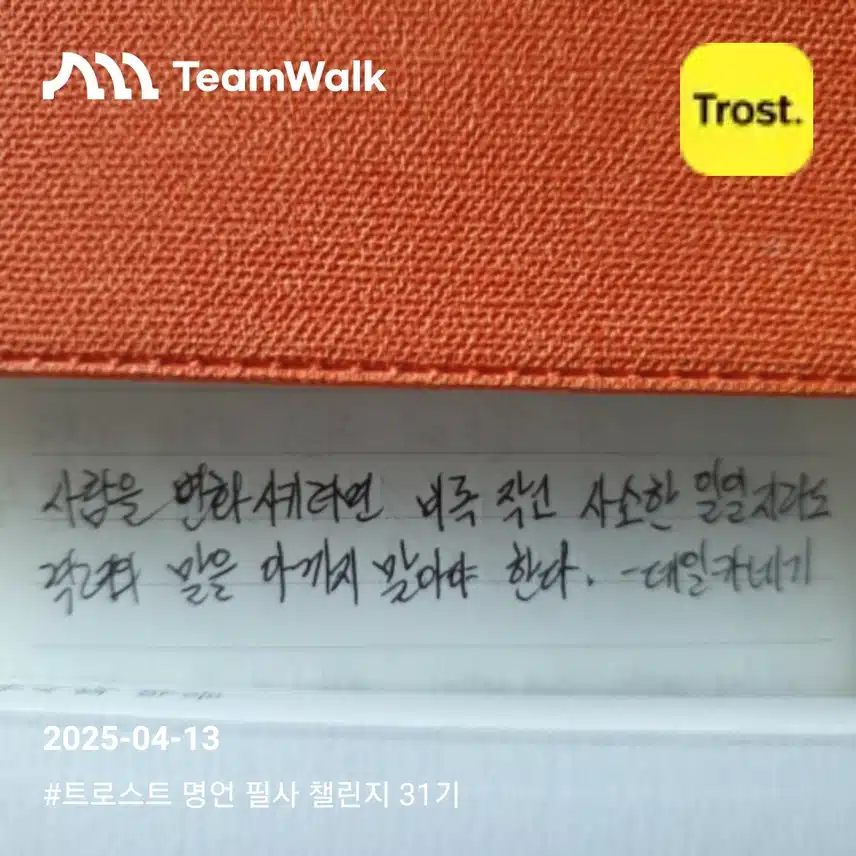 TeamWalk
Trost.
사람을 변화시키려면 비록 작고 사소한 일일지라도
격려의 말을 아끼지 말아야 한다. -데일카네기
2025-04-13
#트로스트 명언 필사 챌린지 31기